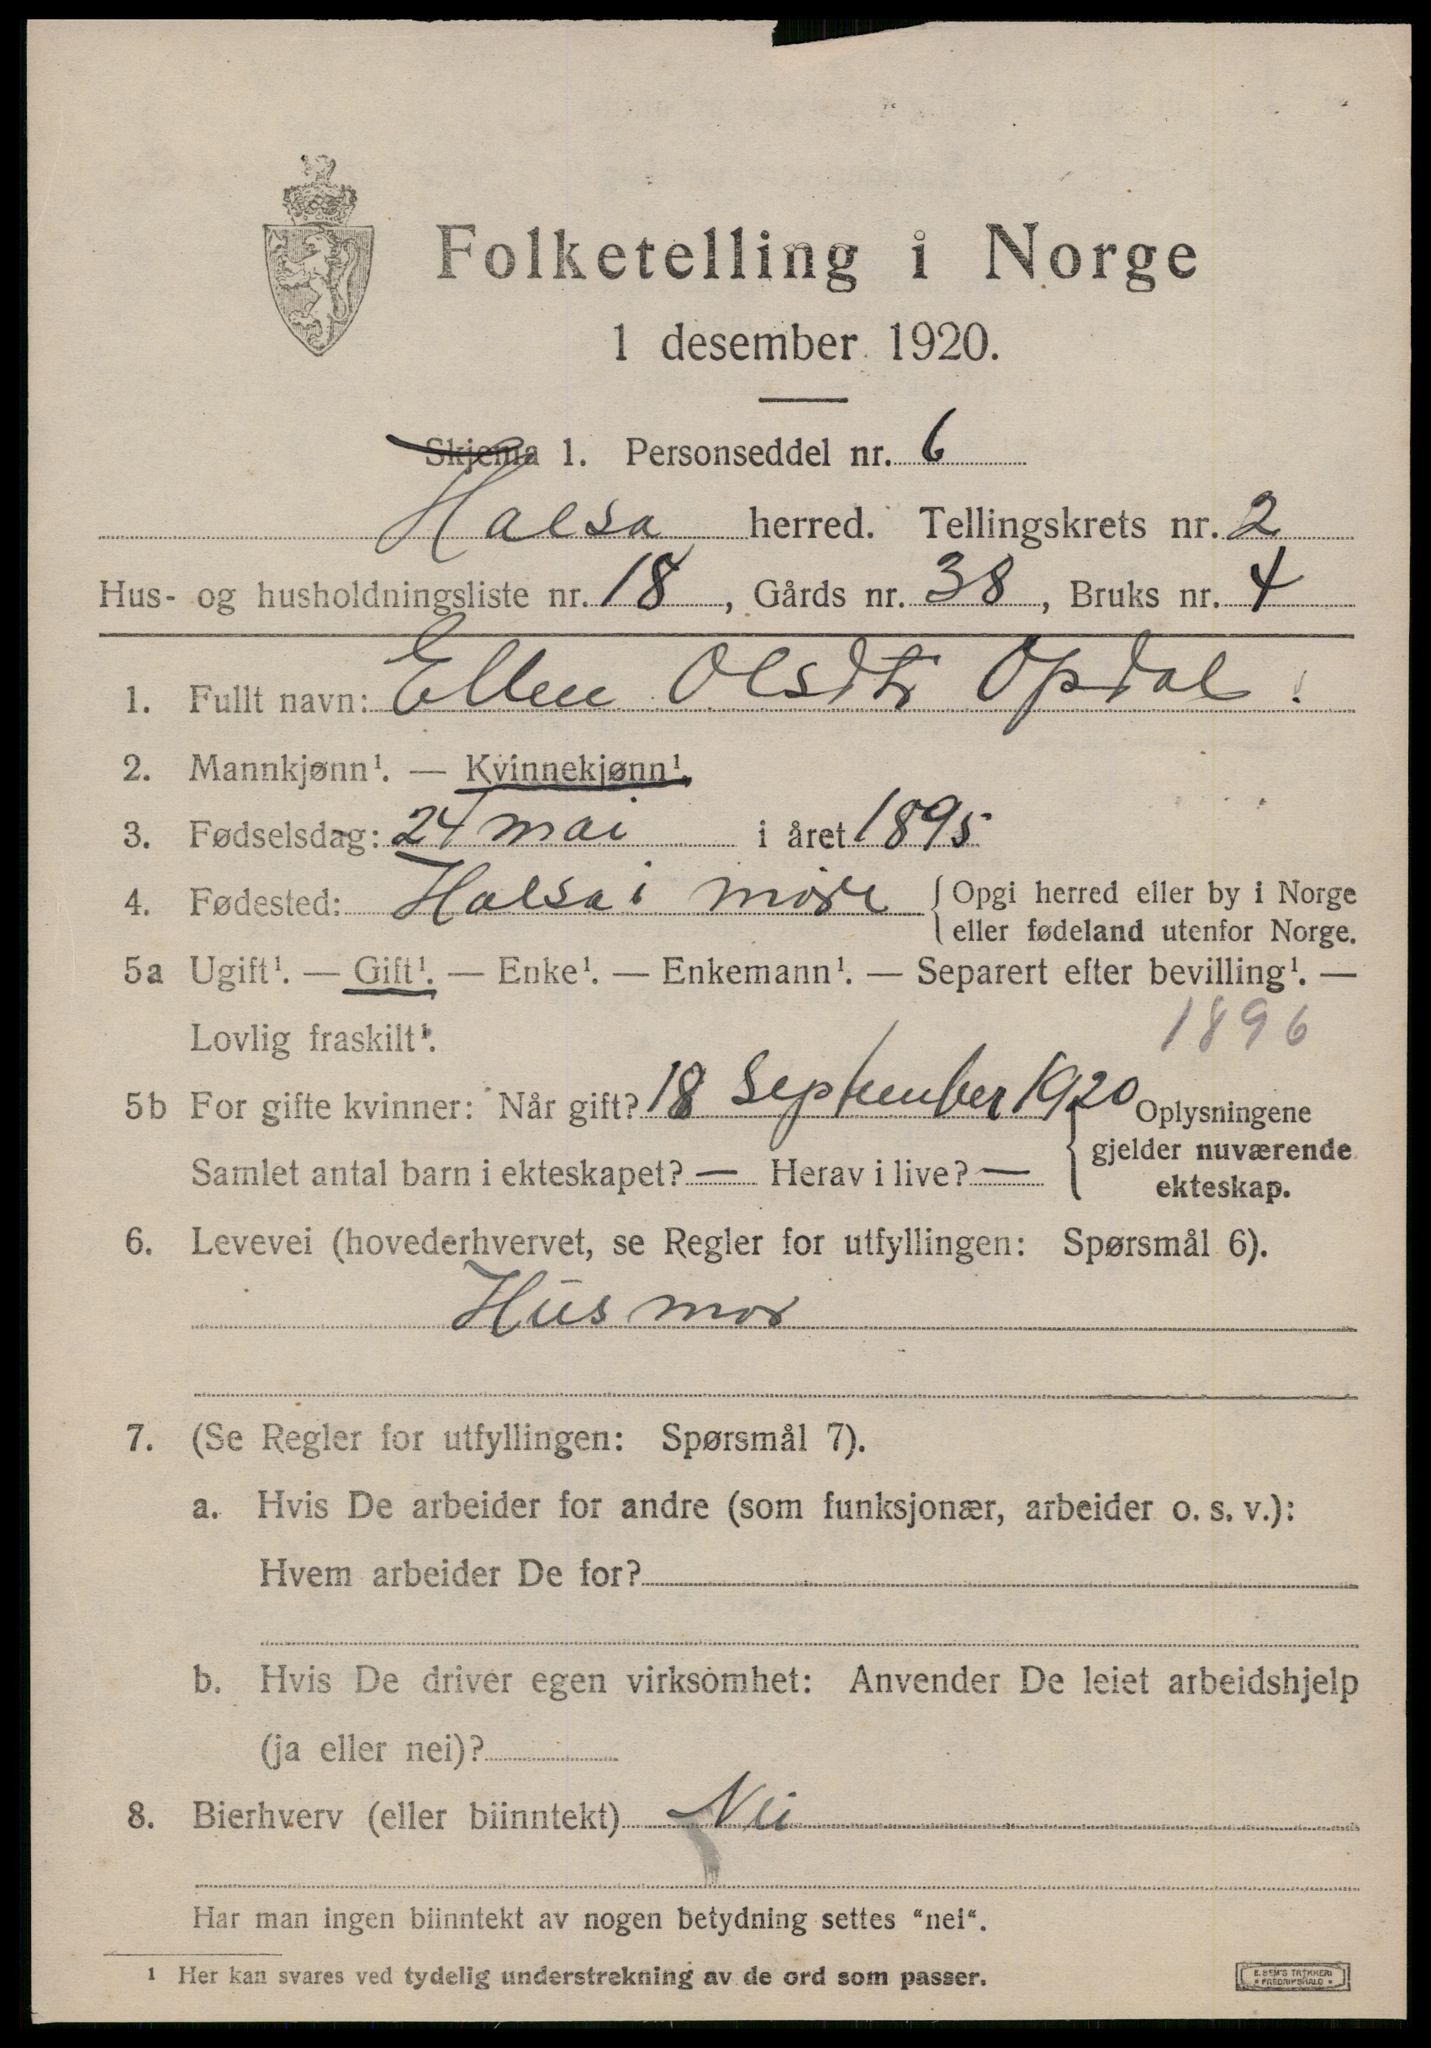 Folketelling i Norge
1 desember 1920.
Skjema 1. Personseddel nr. 6
Halsa herred. Tellingskrets nr. 2
Hus- og husholdningsliste nr. 18, Gårds nr. 38, Bruks nr. 4
1. Fullt navn: Ellen Olsdtr Opdal.
2. Mannkjønn¹. — Kvinnekjønn¹.
3. Fødselsdag: 24 mai i året 1895
4. Fødested: Halsa i møre { Opgi herred eller by i Norge
eller fødeland utenfor Norge.
5a Ugift¹. — Gift¹. — Enke¹. — Enkemann¹. — Separert efter bevilling¹. —
Lovlig fraskilt¹. 1896
5b For gifte kvinner: Når gift? 18 September 1920 Oplysningene
gjelder nuværende
Samlet antal barn i ekteskapet? — Herav i live? —
ekteskap.
6. Levevei (hovederhvervet, se Regler for utfyllingen: Spørsmål 6).
Husmor
7. (Se Regler for utfyllingen: Spørsmål 7).
a. Hvis De arbeider for andre (som funksjonær, arbeider o. s. v.):
Hvem arbeider De for?
b. Hvis De driver egen virksomhet: Anvender De leiet arbeidshjelp
(ja eller nei)?
8. Bierhverv (eller biinntekt) Nei
Har man ingen biinntekt av nogen betydning settes "nei".
¹ Her kan svares ved tydelig understrekning av de ord som passer.
E. SEM'S TRYKKERI
FREDRIKSHALD